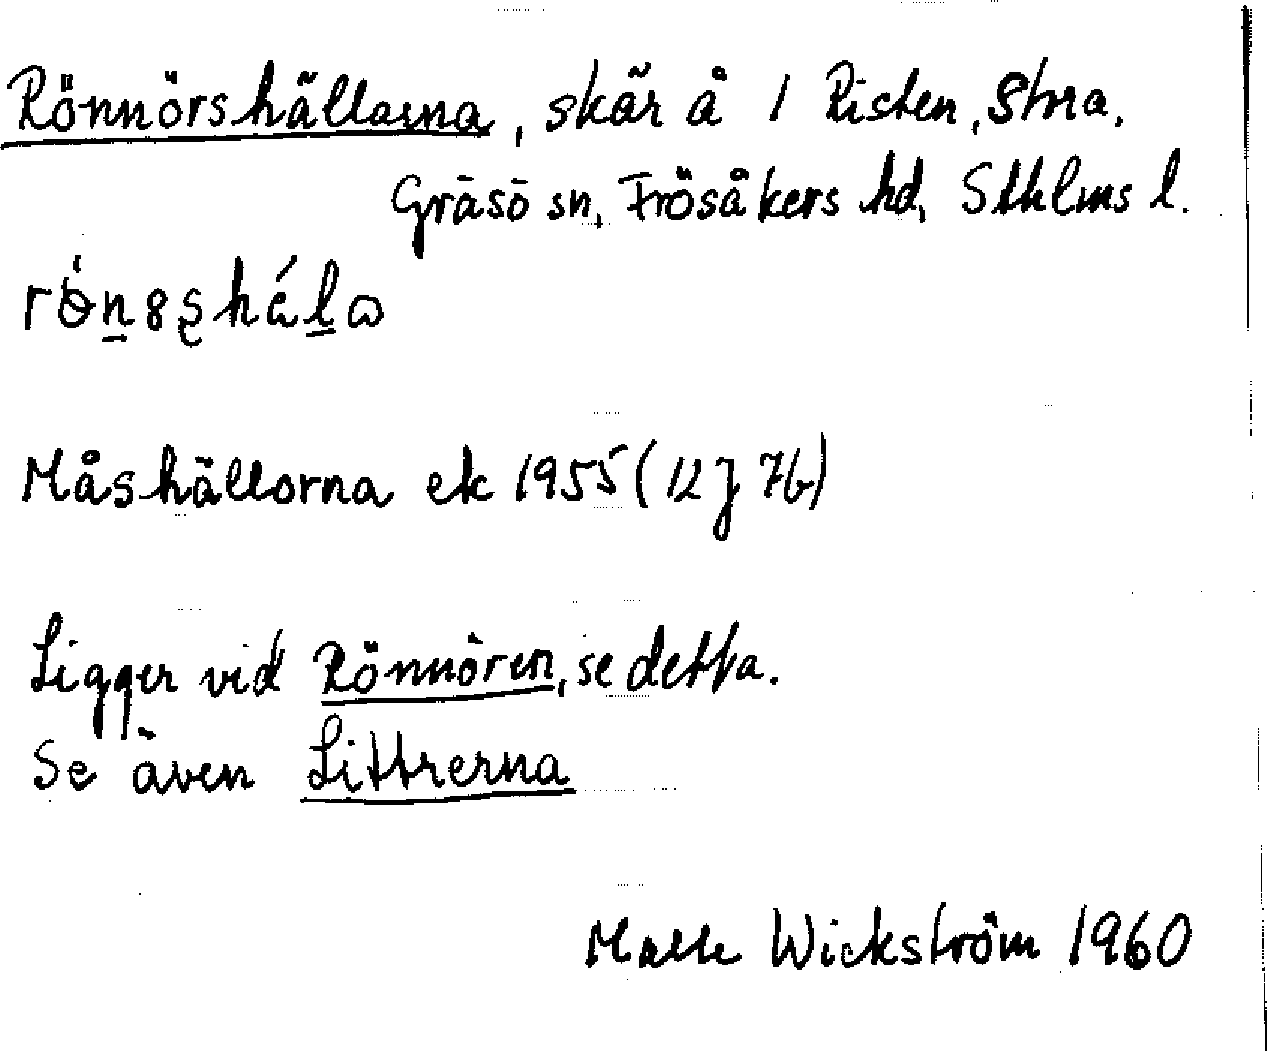 Rönnörshällarna, skär å 1 Risten, Stora,
Gräsö sn, Frösåkers hd, Sthlms l.
Måshällorna ek 1955 (12 J 7b)
Ligger vid Rönnören, se detta.
Se även Littrerna
Malle Wickström 1960